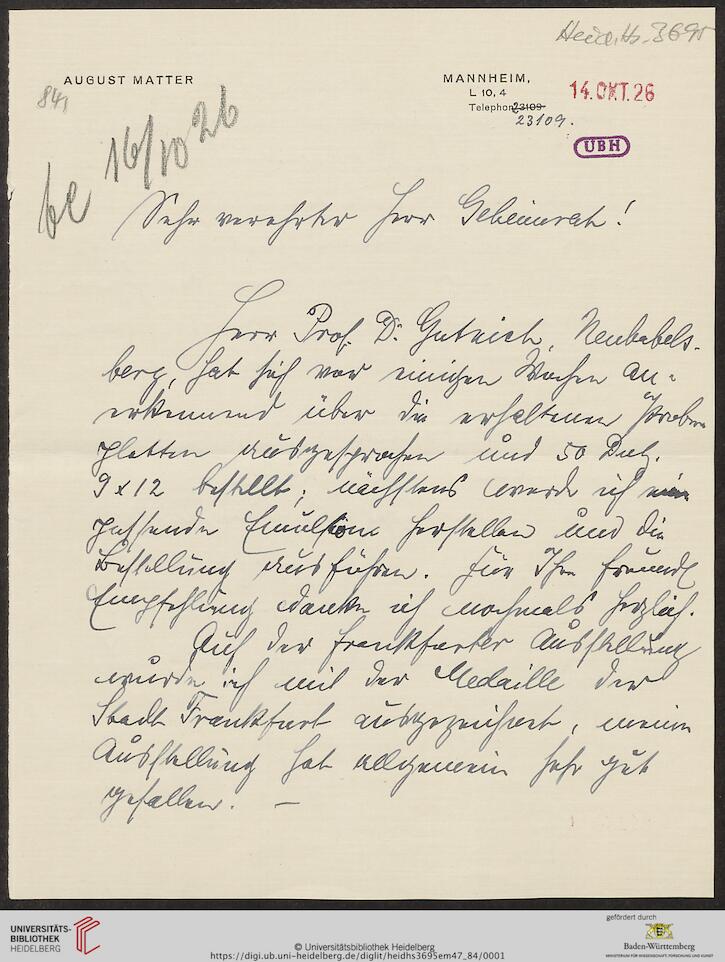 Heid. Hs. 3695
AUGUST MATTER
MANNHEIM,
L 10, 4
Telephon 23109
23109.
14. OKT. 26
84,
UBH
be 16/10 26
Sehr verehrter Herr Geheimrat!
Herr Prof. Dr. Guthnick, Neubabels-
berg, hat sich vor einigen Wochen an-
erkennend über die erhaltenen Proben
platten ausgesprochen und 50 Dutz.
9 x 12 bestellt; nächstens werde ich eine
passende Emulsion herstellen und die
Bestellung ausführen. Für Ihre freundl
Empfehlung danke ich nochmals herzlich.
Auf der Frankfurter Ausstellung
wurde ich mit der Medaille der
Stadt Frankfurt ausgezeichnet, meine
Ausstellung hat allgemein sehr gut
gefallen. –
UNIVERSITÄTS-
BIBLIOTHEK
HEIDELBERG
© Universitätsbibliothek Heidelberg
https://digi.ub.uni-heidelberg.de/diglit/heidhs3695em47_84/0001
gefördert durch
Baden-Württemberg
MINISTERIUM FÜR WISSENSCHAFT, FORSCHUNG UND KUNST